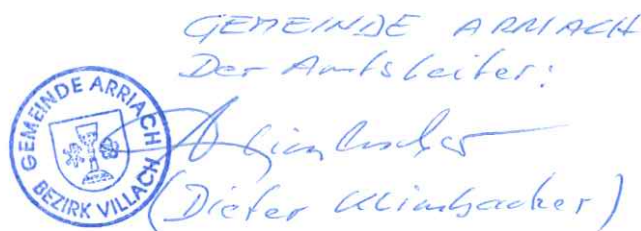 GEMEINDE ARRIACH
Der Amtsleiter:
GEMEINDE ARRIACH
BEZIRK VILLACH
(Dieter Klimbacher)